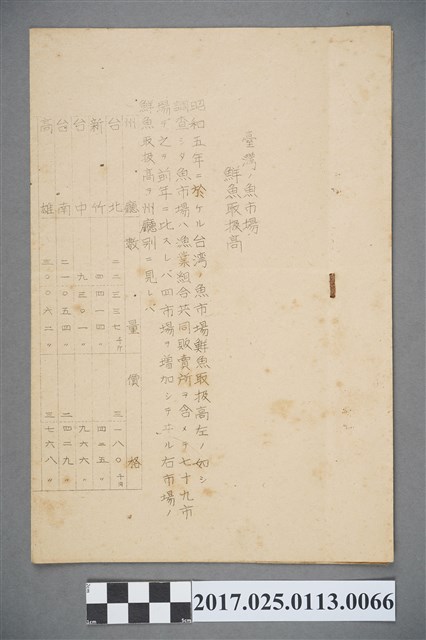 臺灣ノ魚市場
鮮魚取扱高
昭和五年ニ於ケル台湾ノ魚市場鮮魚取扱高左ノ如シ
調査シタ魚市場ハ漁業組合共同販賣所ヲ含メテ七十九市
場デ之ヲ前年ニ比スレバ四市場ヲ増加シテヰル右市場ノ
鮮魚取扱高ヲ州廳別ニ見レバ
州廳 數量 價格
台北 二二三三七千斤 三一八〇千円
新竹 四四一四〃 四二五〃
台中 九三〇一〃 九六六〃
台南 二一〇五四〃 二四二九〃
高雄 三〇〇六二〃 三七六八〃
2017.025.0113.0066
1cm
5cm